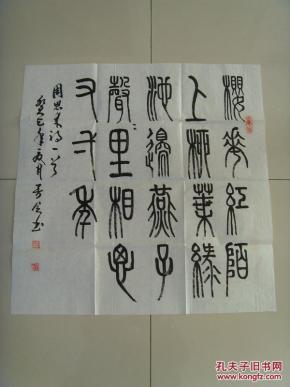 櫻花紅陌
上柳葉綠
池邊燕子
聲〻里相思
又一年
周恩来詩一首
癸巳年
孔夫子旧书网